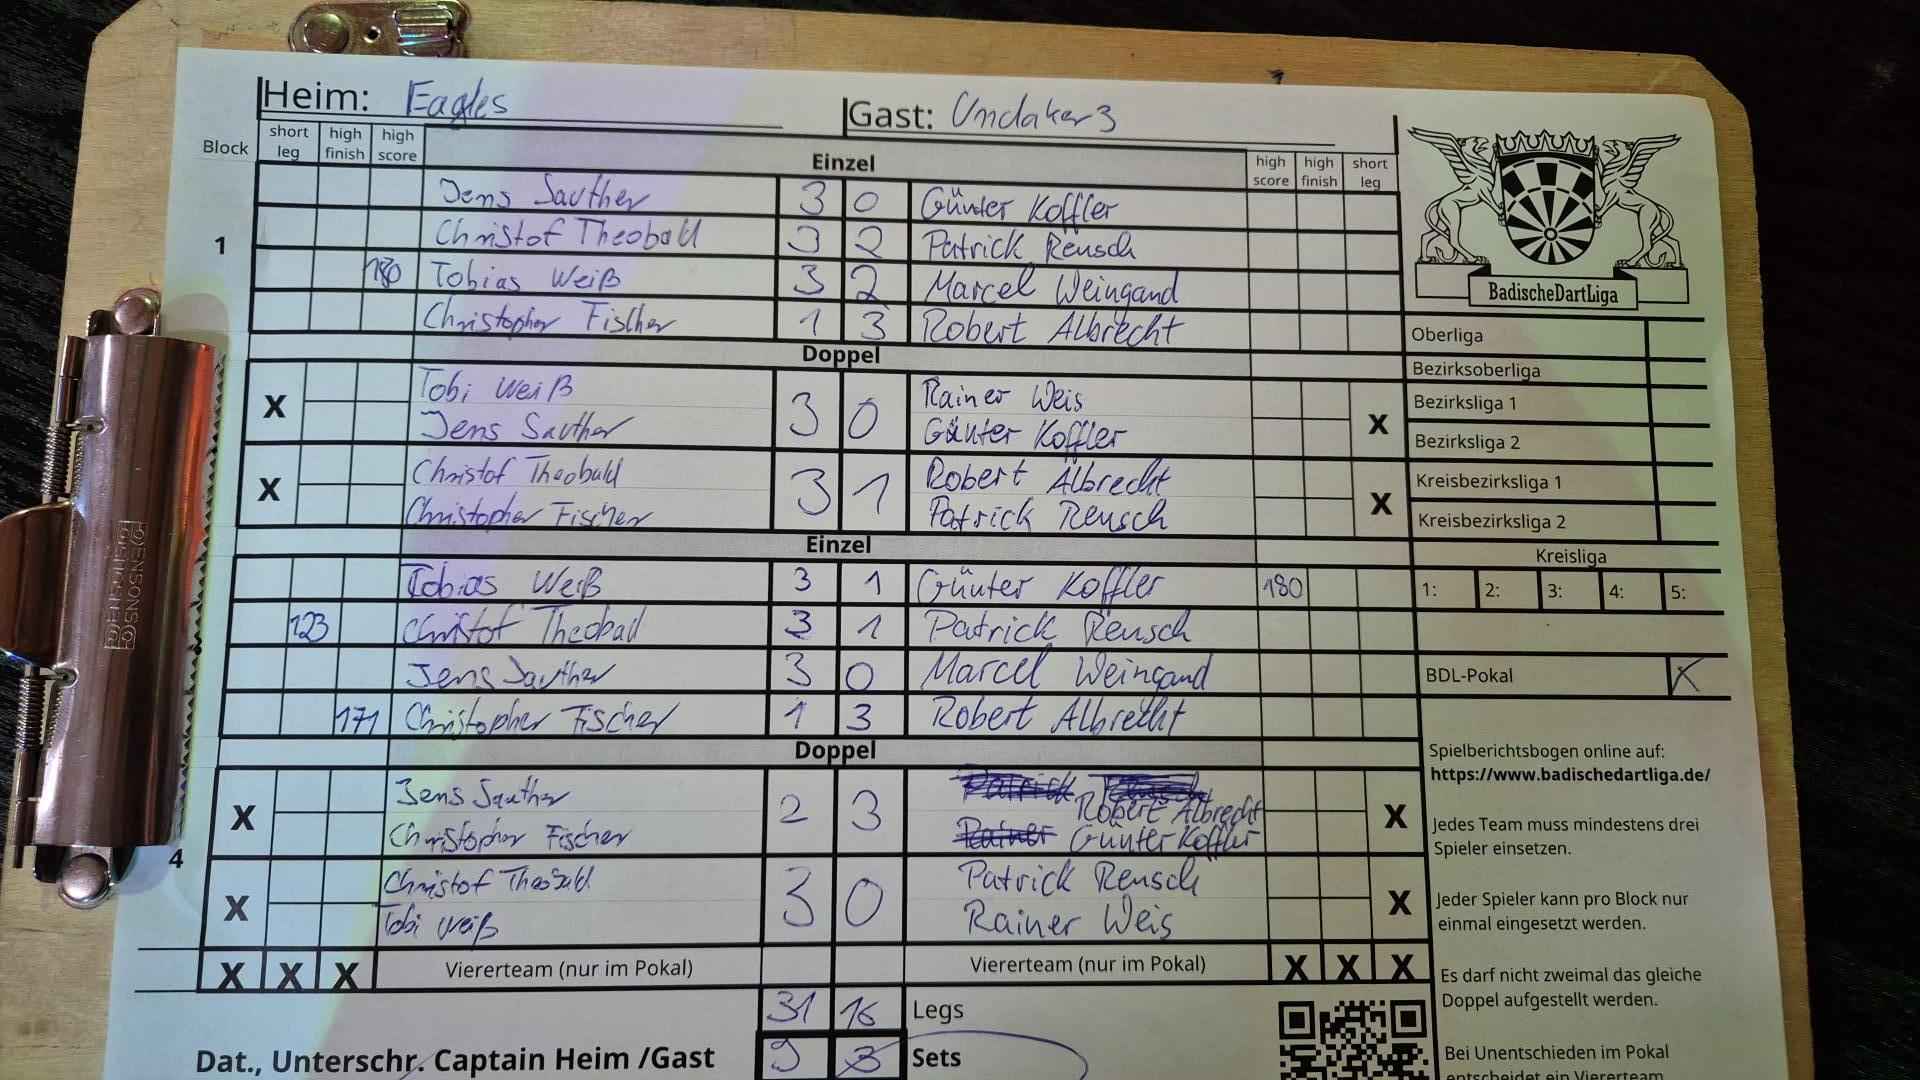 Heim: Eagles Gast: Undaker 3
Block short leg high finish high score Einzel high score high finish short leg
Jens Sauther 3 0 Günter Koffler
1 Christof Theobald 3 2 Patrick Rensch
180 Tobias Weiß 3 2 Marcel Weingand
Christopher Fischer 1 3 Robert Albrecht
Doppel
X Tobi Weiß 3 0 Rainer Weis X
Jens Sauther Günter Koffler
X Christof Theobald 3 1 Robert Albrecht X
Christopher Fischer Patrick Rensch
Einzel
Tobias Weiß 3 1 Günter Koffler 180
123 Christof Theobald 3 1 Patrick Rensch
Jens Sauther 3 0 Marcel Weingand
171 Christopher Fischer 1 3 Robert Albrecht
Doppel
X Jens Sauther 2 3 Robert Albrecht X
Christopher Fischer Rainer Günter Koffler
4
X Christof Theobald 3 0 Patrick Rensch X
Tobi Weiß Rainer Weis
X X X Viererteam (nur im Pokal) Viererteam (nur im Pokal) X X X
31 16 Legs
Dat., Unterschr. Captain Heim /Gast 9 3 Sets
BadischeDartLiga
Oberliga
Bezirksoberliga
Bezirksliga 1
Bezirksliga 2
Kreisbezirksliga 1
Kreisbezirksliga 2
Kreisliga
1: 2: 3: 4: 5:
BDL-Pokal X
Spielberichtsbogen online auf:
https://www.badischedartliga.de/
Jedes Team muss mindestens drei
Spieler einsetzen.
Jeder Spieler kann pro Block nur
einmal eingesetzt werden.
Es darf nicht zweimal das gleiche
Doppel aufgestellt werden.
Bei Unentschieden im Pokal
entscheidet ein Viererteam